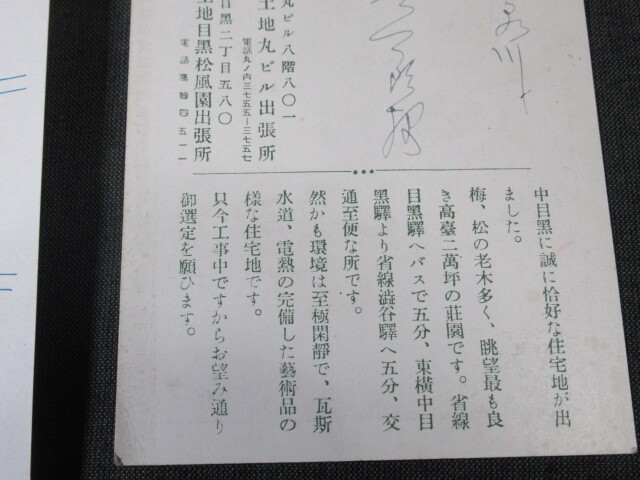 中目黑に誠に恰好な住宅地が出
ました。
梅、松の老木多く、眺望最も良
き高臺二萬坪の莊園です。省線
目黑驛へバスで五分、東橫中目
黑驛より省線澁谷驛へ五分、交
通至便な所です。
然かも環境は至極閑靜で、瓦斯
水道、電熱の完備した藝術品の
樣な住宅地です。
只今工事中ですからお望み通り
御選定を願ひます。
丸ビル八階八〇一
土地丸ビル出張所
電話丸ノ内三七五五―三七五七
目黑二丁目五八〇
土地目黑松風園出張所
電話高輪四五一一